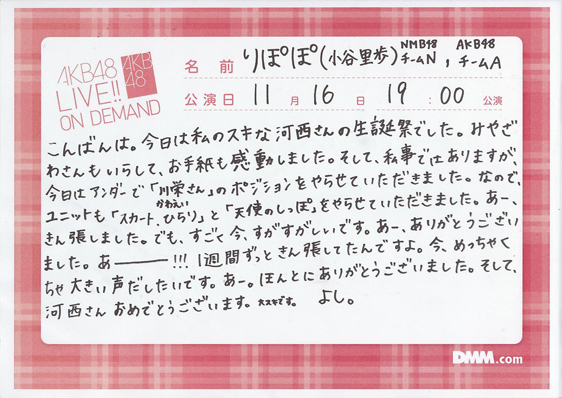 AKB48
LIVE!!
ON DEMAND
AKB
48
名前 りぽぽ(小谷里歩) NMB48 チームN , AKB48 チームA
公演日 11月16日 19:00公演
こんばんは。今日は私のスキな河西さんの生誕祭でした。みやざ
わさんもいらして、お手紙も感動しました。そして、私事ではありますが、
今日はアンダーで「川栄さん」のポジションをやらせていただきました。なので、
かわえい
ユニットも「スカート、ひらり」と「天使のしっぽ」をやらせていただきました。あー、
きん張しました。でも、すごく今、すがすがしいです。あー、ありがとうござい
ました。あ———!!! 1週間ずっときん張してたんですよ。今、めっちゃく
ちゃ大きい声だしたいです。あー。ほんとにありがとうございました。そして、
河西さんおめでとうございます。大スキです。 よし。
DMM.com